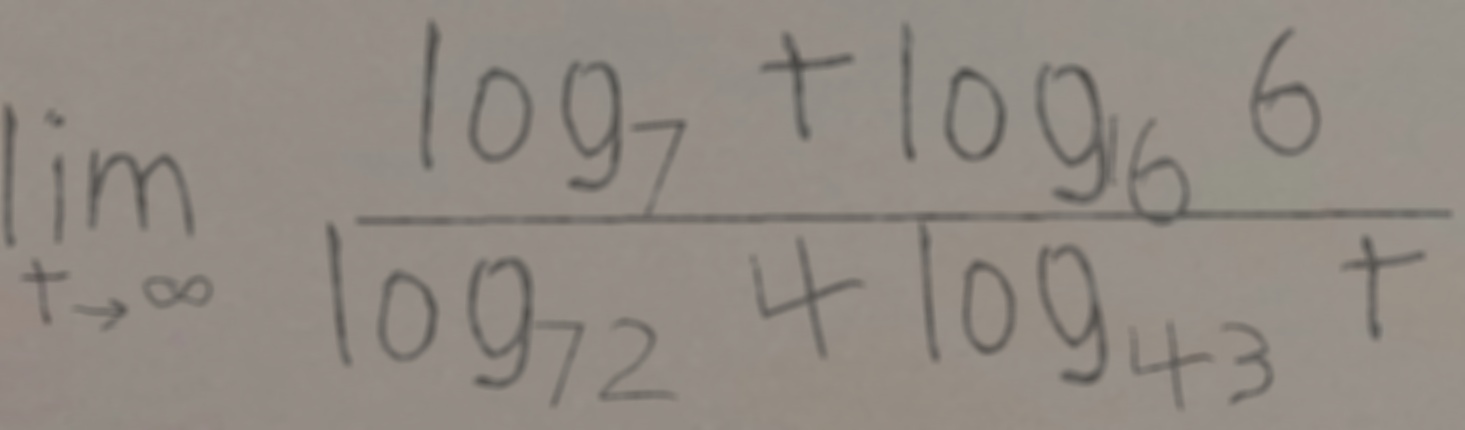 \lim_{t \to \infty} \frac{\log_7 t \log_{16} 6}{\log_{72} 4 \log_{43} t}